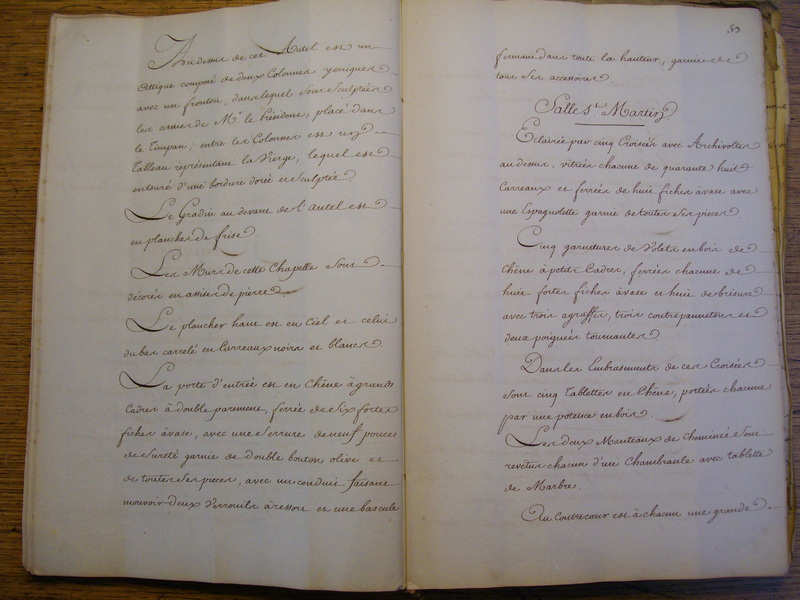 Au dessus de cet Autel est un
Attique composé de deux Colonnes yoniques
avec un fronton, dans lequel sont sculptées
les armes de Mr le Président, placé dans
le Timpan; entre les Colonnes est un
Tableau représentant la Vierge, lequel est
entouré d'une bordure dorée et sculptée.
Le Gradin au devant de l'Autel est
en planches de frise
Les Murs de cette Chapelle sont
décorés en assises de pierre
Le plancher haut est en Ciel et celui
du bas carrelé en Carreaux noirs et blancs
La porte d'entrée est en Chêne à grands
Cadres à double parement, ferrée de Six fortes
fiches à vase, avec une Serrure de neuf pouces
de sureté garnie de double bouton olive et
de toutes ses pieces, avec un conduit faisant
mouvoir deux Verrouils à ressort et une bascule
53
fermant dans toute la hauteur, garnie de
tous ses accessoires.
Salle St. Martin
Eclairée par cinq Croisées avec Archivoltes
au dessus, vitrées chacune de quarante huit
Carreaux et ferrées de huit fiches à vase avec
une Espagnolette garnie de toutes ses pieces.
Cinq garnitures de Volets en bois de
Chêne à petits Cadres, ferrées chacune de
huit fortes fiches à vase et huit de brisure
avec trois agraffes, trois contrepannetons et
deux poignées tournantes
Dans les Embrasements de ces Croisées
sont cinq Tablettes en Chêne, portées chacune
par une potence en bois.
Les deux Manteaux de cheminée sont
revêtus chacun d'un Chambranle avec tablette
de Marbre.
Au Contrecoeur est à chacun une grande